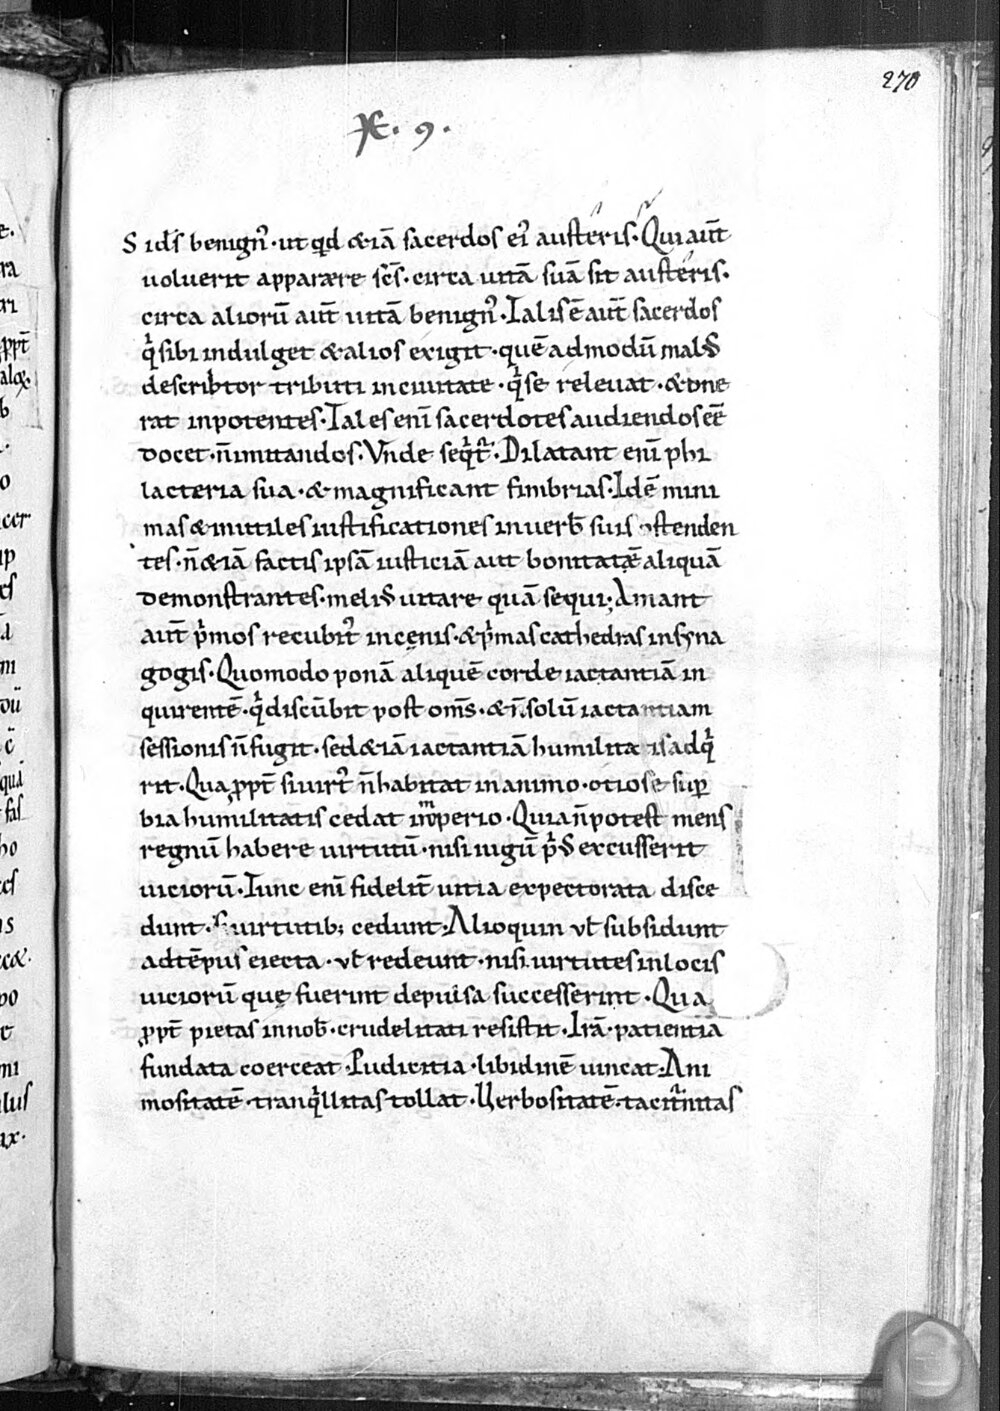 270
.9.
S id̄s benignꝰ · ut qͥd &iā sacerdos eiꝰ austeris · Qui aūt
uoluerit apparaere sc̄s · circa uitā suā sit austeris ·
circa aliorū aūt uitā benignꝰ · Talis ē aūt sacerdos
qͥ sibi indulget & alios exigit · quē admodū malꝰ
descriptor tributi in ciuitate · qͥ se releuat · & one
rat inpotentes · Tales eni sacerdotes audiendos eē
docet · n̄ imitandos · Vnde seqͥtͬ · Dilatant enī phi
lacteria sua · & magnificant fimbrias · Idē mini
mas & inutiles iustificationes in uerb̄ suis ostenden
tes · n̄ &iā factis ipsā iusticiā aut bonitatǣ aliquā
demonstrantes · meliꝰ uitare quā sequi ; Amant
aūt pͥmos recubitꝰ in cęnis · & pͥmas cathedras in syna
gogis · Quomodo ponā aliquē corde iactantiā in
quirentē · qͥ discūbit post om̄s · & n̄ solū iactantiam
sessionis n̄ fugit · sed &iā iactantiā humilitatis adqͥ
rit · Qua ꝓpt̄ si uirtꝰ n̄ habitat in animo · otiose suꝑ
bia humilitatis cedat imperio · Quia n̄ potest mens
regnū habere uirtutū · nisi iugū pͥꝰ excusserit
uiciorū · Tunc enī fidelit̄ uitia expectorata disce
dunt · si uirtutib; cedunt · Alioquin ul̄ subsidunt
ad tēpus eiecta · ul̄ redeunt · nisi uirtutes in locis
uiciorū quę fuerint depulsa successerint · Qua
ꝓpt̄ pietas in nob̄ · crudelitati resistit · Irā · patientia
fundata coerceat · Pudicitia · libidinē uincat · Ani
mositatē · tranqͥllitas tollat · Uerbositatē · taciturnitas